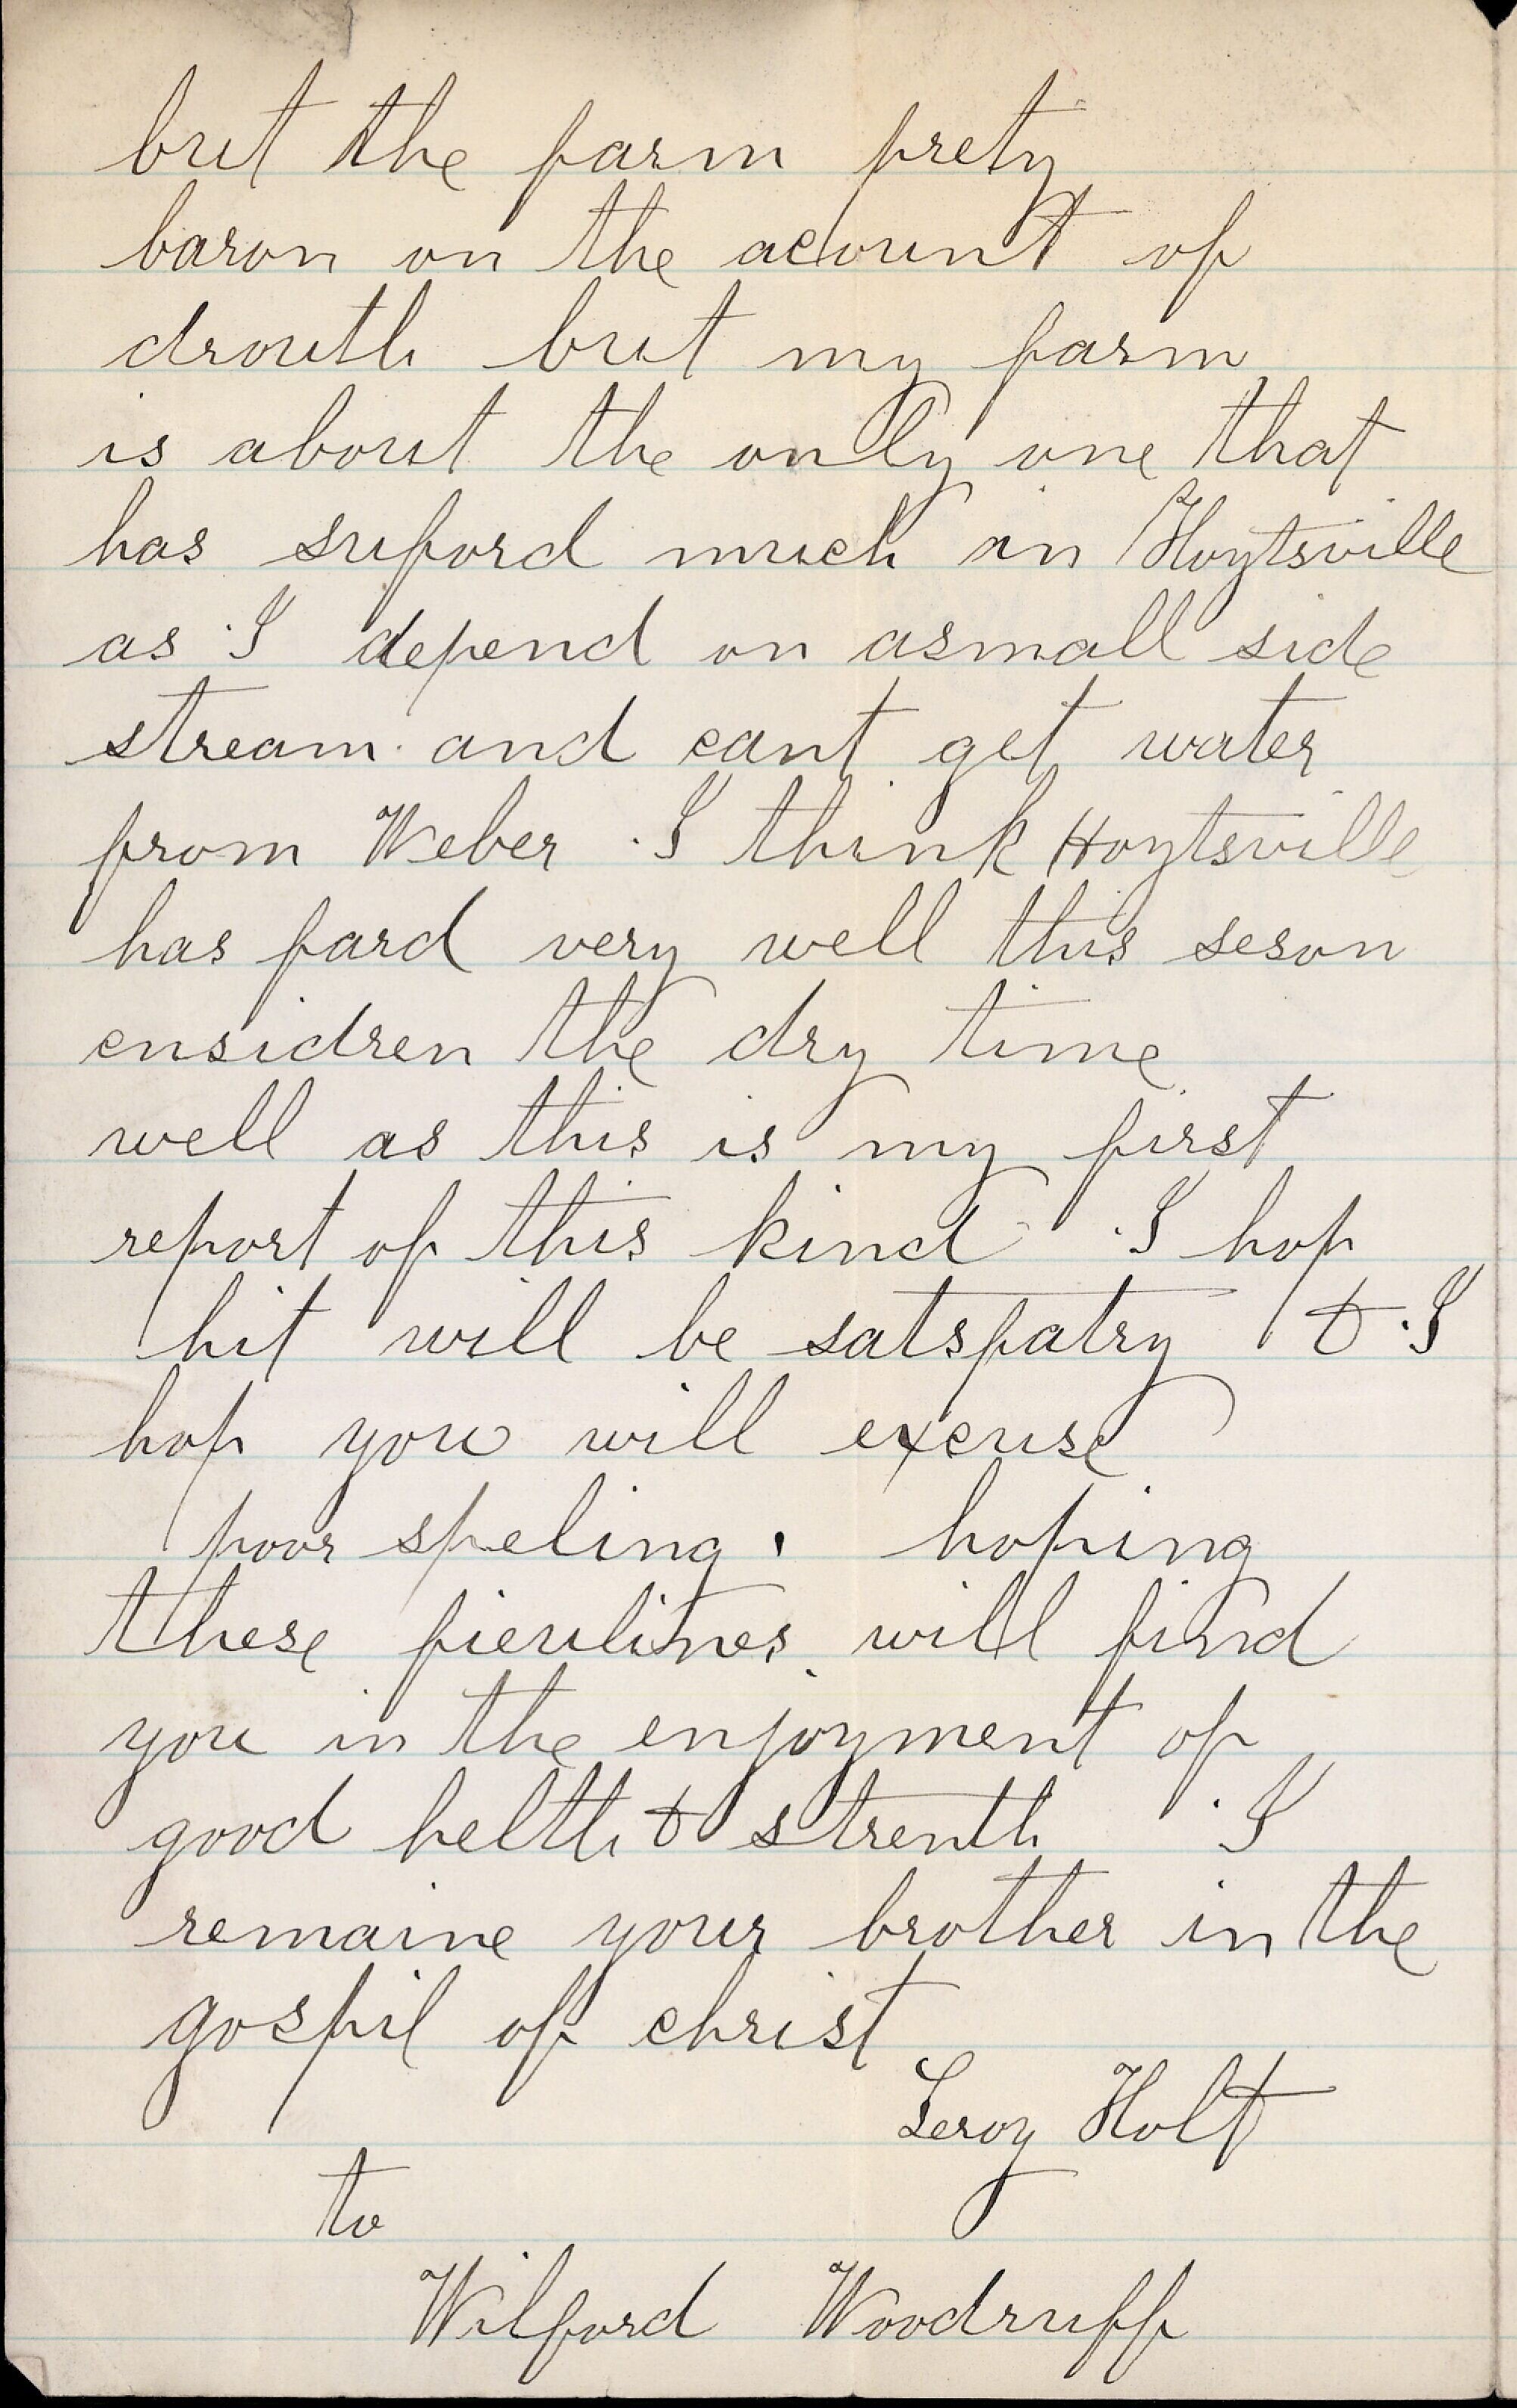 but the farm prety
baron on the acount of
drouth but my farm
is about the only one that
has suford much in Hoytsville
as I depend on asmall side
stream and cant get water
from Weber I think Hoytsville
has fard very well this seson
ensidren the dry time
well as this is my first
report of this kind I hop
hit will be satsfatry & I
hop you will excuse
poor speling. hoping
these fieulines will find
you in the enjoyment of
good helth & strenth I
remaine your brother in the
gospil of christ
Leroy Holt
to
Wilford Woodruff